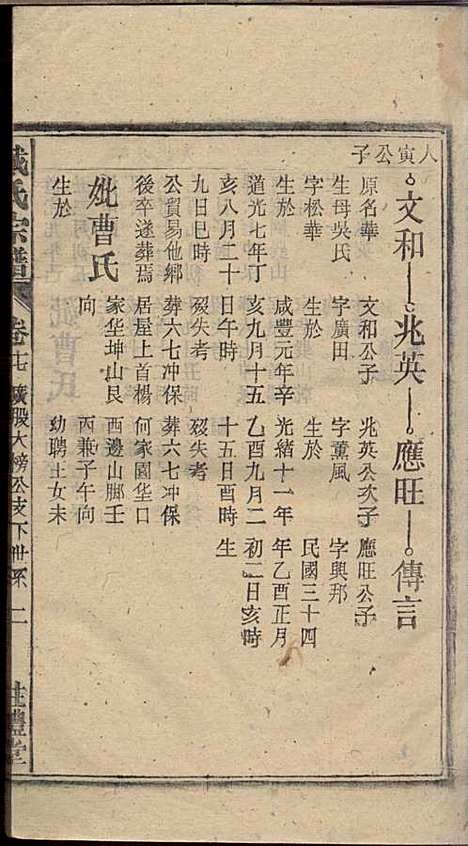 人寅公子
文和 兆英 應旺 傳言
原名華 文和公子 兆英公次子 應旺公子
生母吳氏 字廣田 字薰風 字興邦
字松華 生於 生於 民國三十四
生於 咸豐元年辛 光緒十一年 年乙酉正月
道光七年丁 亥九月十五 乙酉九月二 初二日亥時
亥八月二十 日午時 十五日酉時 生
九日巳時 歿失考 歿失考
公貿易他鄉 葬六七冲保 葬六七冲保
後卒遂葬焉 居屋上首楊 何家園垄口
妣曹氏 家垄坤山艮 西邊山腳壬
向 丙兼子午向
生於 幼聘王女未
氏宗譜 卷十七 廣股大榜公支下世系 二 禮堂